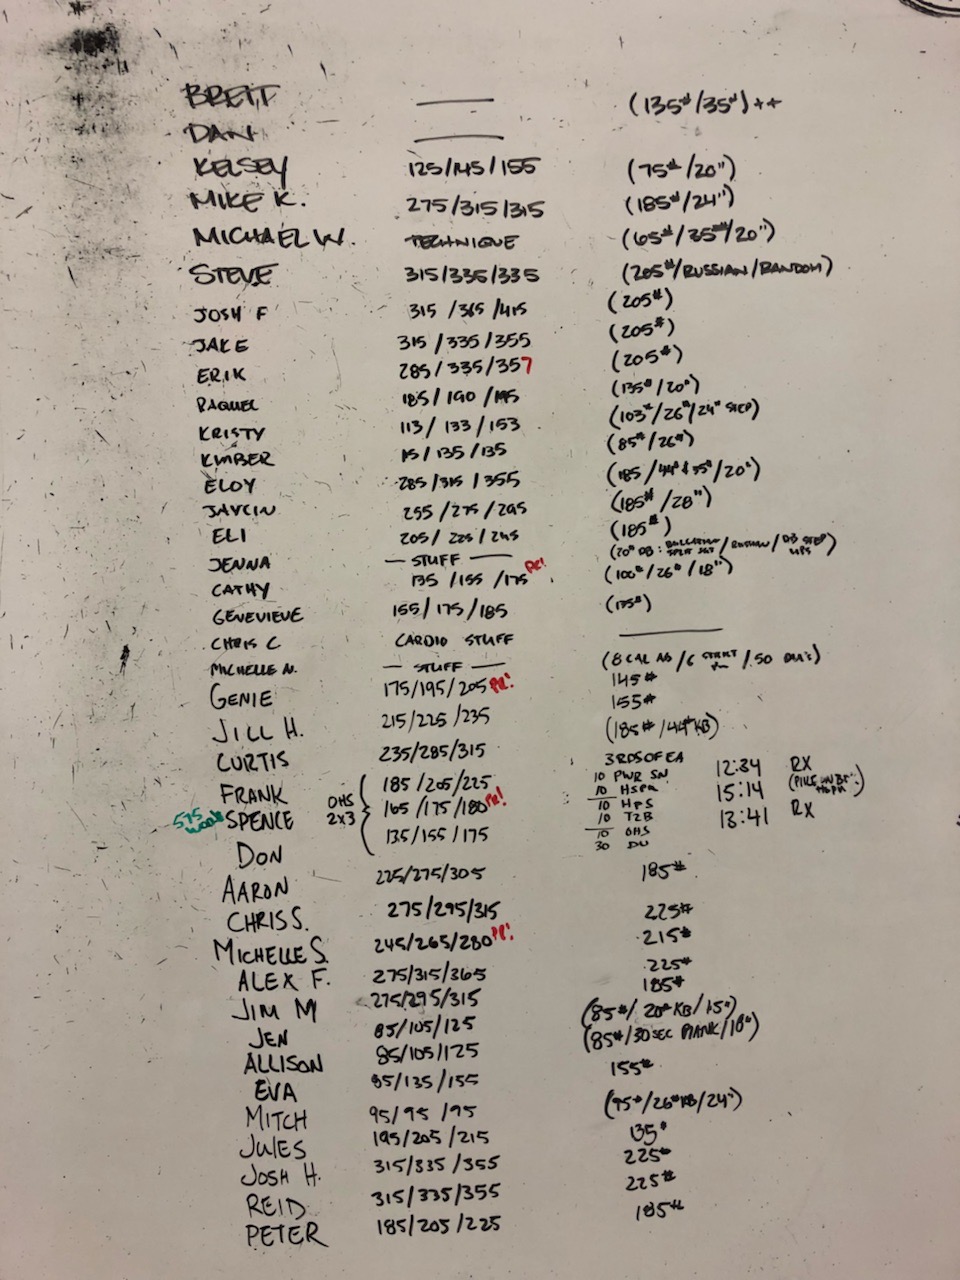 BRETT —— (135#/35#)++
DAN ——
KELSEY 125/145/155 (75#/20")
MIKE K. 275/315/315 (185#/24")
MICHAEL W. TECHNIQUE (65#/35#/20")
STEVE 315/335/335 (205#/RUSSIAN/RANDOM)
JOSH F 315/365/415 (205#)
JAKE 315/335/355 (205#)
ERIK 285/335/357 (205#)
RAQUEL 185/190/195 (135#/20")
KRISTY 113/133/153 (103#/26#/24" STEP)
KIMBER 135/135 (85#/26#)
ELOY 285/315/355 (185/44#&35#/20")
JAYCIN 255/275/295 (185#/28")
ELI 205/225/245 (185#)
JENNA — STUFF — (20# DB: BULGARIAN SPLIT SQT/RUSSIAN/DB STEP UPS)
CATHY 135/155/175 PR! (100#/26#/18")
GENEVIEVE 155/175/185 (135#)
CHRIS C CARDIO STUFF ——
MICHELLE N. — STUFF — (8 CAL AB/6 /50 DU's)
GENIE 175/195/205 PR! 145#
JILL H. 215/225/235 155#
CURTIS 235/285/315 (185#/44#KB)
3 RDS OF EA
FRANK 185/205/225 10 PWR SN 12:34 RX
575 WOOD SPENCE OHS 2x3 165/175/180 PR! 10 HSPU 15:14
10 HPS
DON 135/155/175 10 T2B 13:41 RX
10 OHS
30 DU
AARON 225/275/305 185#
CHRIS S. 275/295/315 225#
MICHELLE S. 245/265/280 PR! 215#
ALEX F. 275/315/365 225#
JIM M 275/295/315 185#
JEN 85/105/125 (85#/20#KB/15#)
ALLISON 85/105/125 (85#/30SEC PLANK/18")
EVA 85/135/155 155#
MITCH 95/95/95 (95#/26#KB/24")
JULES 195/205/215 135#
JOSH H. 315/335/355 225#
REID 315/335/355 225#
PETER 185/205/225 185#